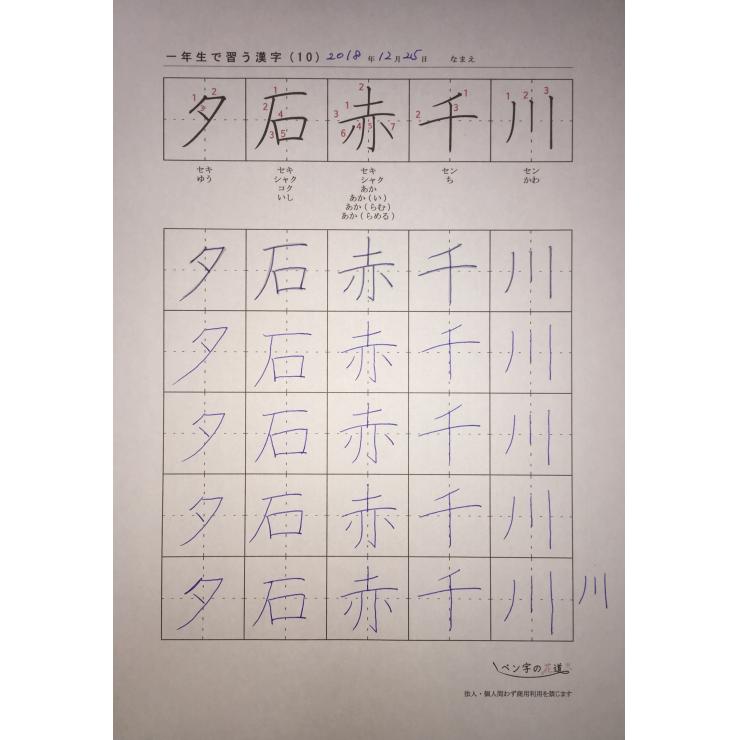 一年生で習う漢字（10） 2018 年 12 月 25 日 なまえ
夕 石 赤 千 川
1 2 3 1 2 3 4 5 1 2 3 4 5 6 7 1 2 3 1 2 3
セキ セキ セキ セン セン
ゆう シャク シャク ち かわ
コク あか
いし あか（い）
あか（らむ）
あか（らめる）
夕 石 赤 千 川
夕 石 赤 千 川
夕 石 赤 千 川
夕 石 赤 千 川
夕 石 赤 千 川 川
ペン字の花道
法人・個人問わず商用利用を禁じます